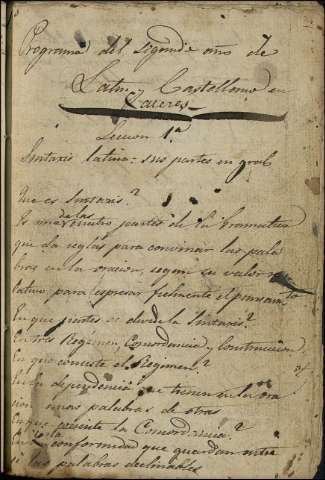 Programa del segundo año de
Latin y Castellano en
Caceres
Leccion 1.ª
Sintaxis latina = sus partes en gral
Que es Sintaxis?
Es una de las cuatro partes de la Gramatica
que da reglas para convinar las pala
bras en la oracion, segun su valor re
lativo para espresar fielmente el pensamto
En que partes se divide la Sintaxis?
En tres Regimen, Concordancia, y Construccion
En que consiste el Regimen?
En la dependencia que tienen en la ora
cion unas palabras de otras
En que consiste la Concordancia?
En la conformidad que guardan entre
si las palabras declinables